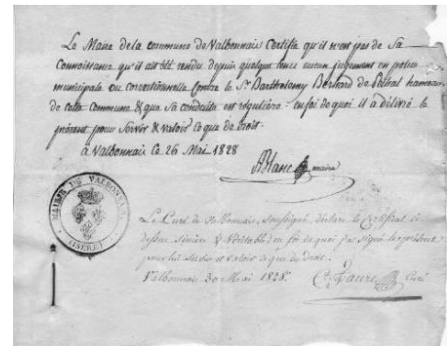 Le Maire de la commune de Valbonnais Certifie qu'il n'est pas de Sa
Connaissance qu'il ait été rendu depuis quelque tems aucun jugement en police
municipale ou correctionnelle Contre le Sr. Barthelemy Bernard de hameau
de cette Commune & que Sa conduite est régulière en foi de quoi il a délivré le
présent pour Servir & valoir ce que de Droit.
à Valbonnais le 26 Mai 1828
ABlanc maire
MAIRIE DE VALBONNAIS
(ISERE)
Le Curé de Valbonnais, soussigné, déclare le Certificat ci
dessus Sincère & Véritable en foi de quoi j'ai signé le présent
pour lui Servir et valoir ce que de droit.
Valbonnais 30 Mai 1828.
Faure Curé